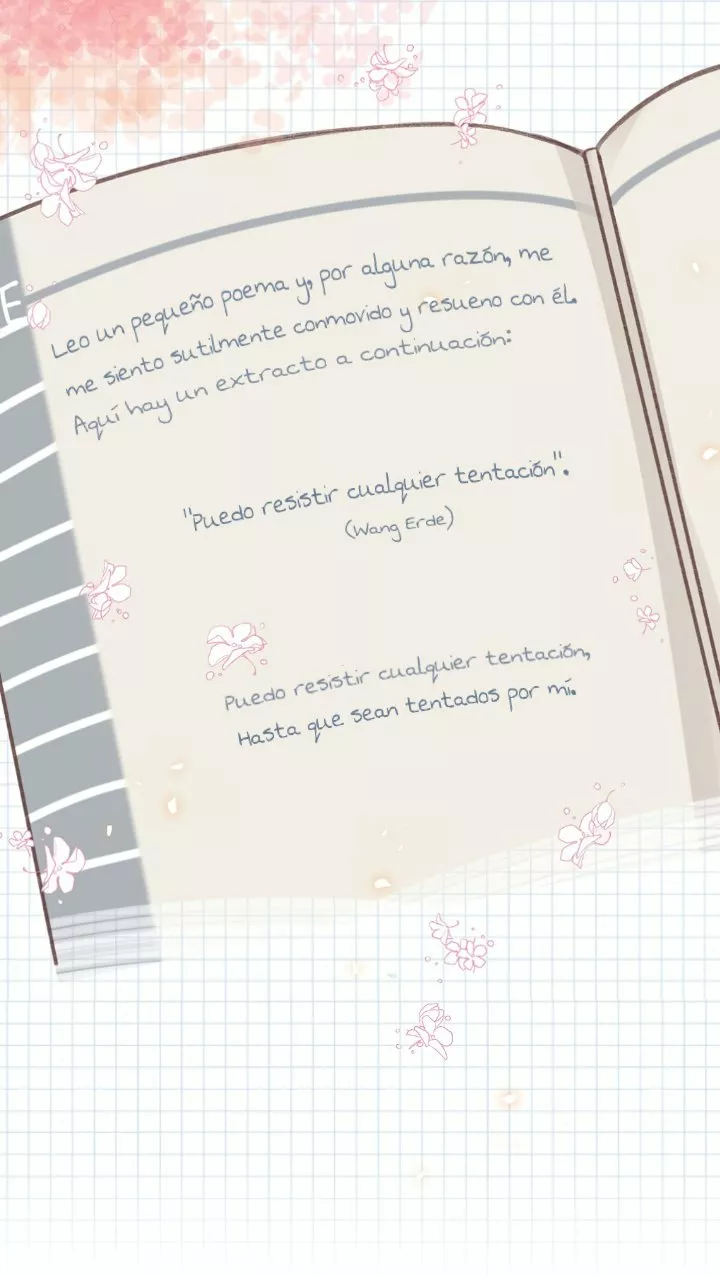 E
Leo un pequeño poema y, por alguna razón, me
me siento sutilmente conmovido y resueno con él.
Aquí hay un extracto a continuación:
"Puedo resistir cualquier tentación".
(Wang Erde)
Puedo resistir cualquier tentación,
Hasta que sean tentados por mí.